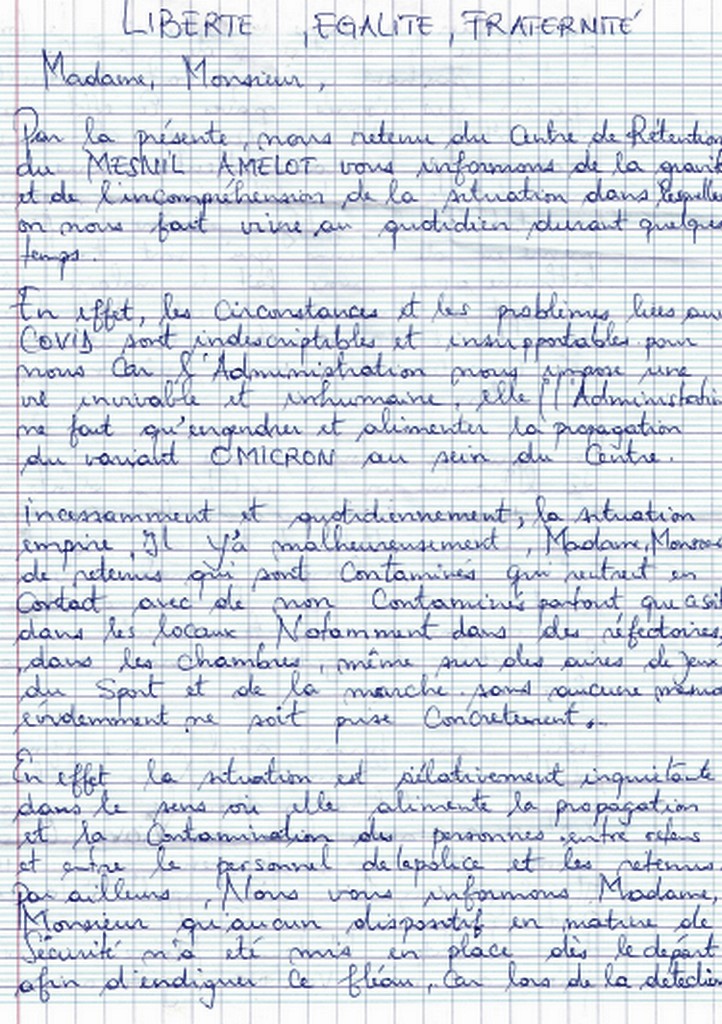 LIBERTE , EGALITE , FRATERNITÉ
Madame, Monsieur,
Par la présente, nous retenu du Centre de Rétention
du MESNIL AMELOT vous informons de la gravit
et de l'incompréhension de la situation dans lequelle
on nous fait vivre au quotidien durant quelque
temps.
En effet, les Circonstances et les problèmes liees au
COVID sont indescriptibles et insupportables pour
nous Car l'Administration nous impose une
vie invivable et inhumaine, elle (l'Administratio
ne fait qu'engendrer et alimenter la propagation
du variant OMICRON au sein du Centre.
incessamment et quotidiennement, la situation
empire, Il y'à malheureusement, Madame, Monsieu
de retenus qui sont Contaminés qui rentrent en
Contact avec de non Contaminés partout que ce soit
dans les locaux Notamment dans des réfectoires
, dans les chambres, même sur des aires de Jeux
du Sport et de la marche sans aucune mesure
évidemment ne soit prise Concrètement.
En effet la situation est rélativement inquiétante
dans le sens où elle alimente la propagation
et la Contamination des personnes entre retenus
et entre le personnel de la police et les retenus
Par ailleurs, Nous vous informons Madame,
Monsieur qu'aucun dispositif en matière de
Sécurité n'a été mis en place dès le départ
afin d'endiguer ce fléau, Car lors de la détection